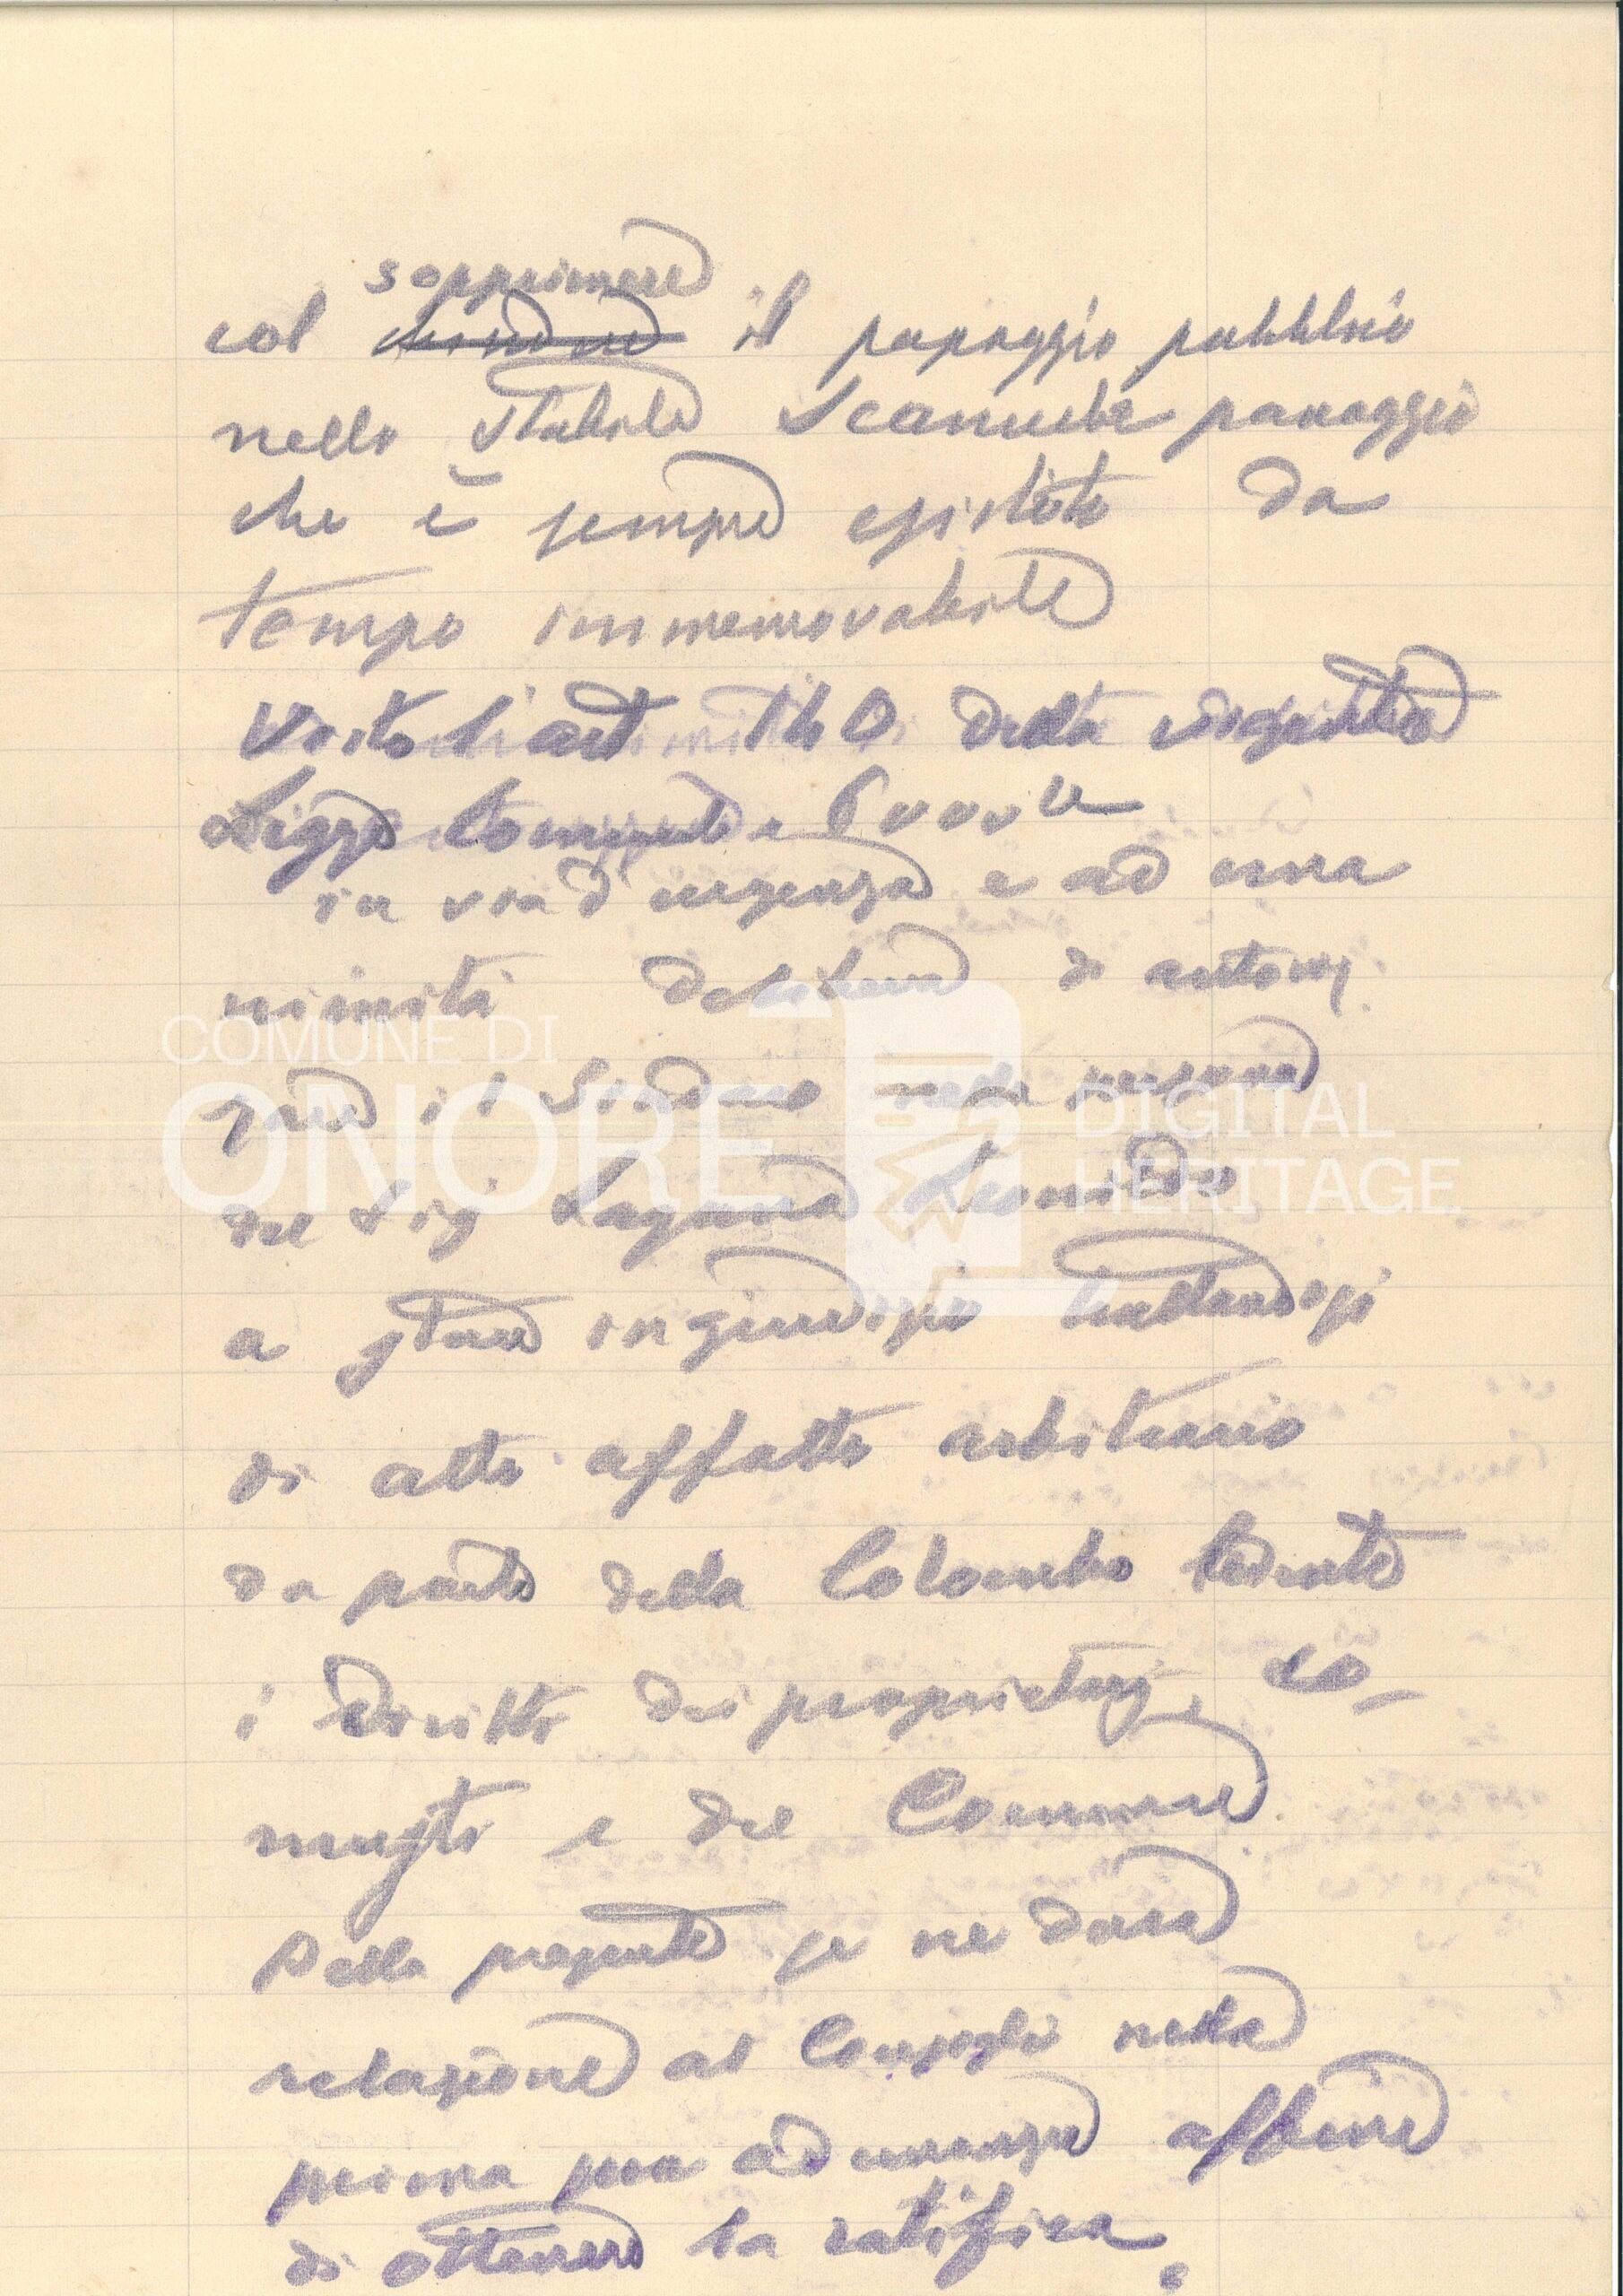 sopprimere
col chiudere il passaggio pubblico
nello stabile passaggio
che è sempre esistito da
tempo immemorabile
Visto l'art 140 della vigente
Legge Comunale e Provle
in via d'urgenza e ad una
nimità delibera di autoriz
zare il Sindaco nella persona
del Sig Leonildo
a stare in giudizio trattandosi
di atto affatto arbitrario
da parte della Colombo
i diritti dei proprietarj, co-
e del Comune.
Della presente se ne darà
relazione al Consiglio nella
prima sua adunanza affine
di ottenere la ratifica.
COMUNE DI
ONORE
DIGITAL
HERITAGE